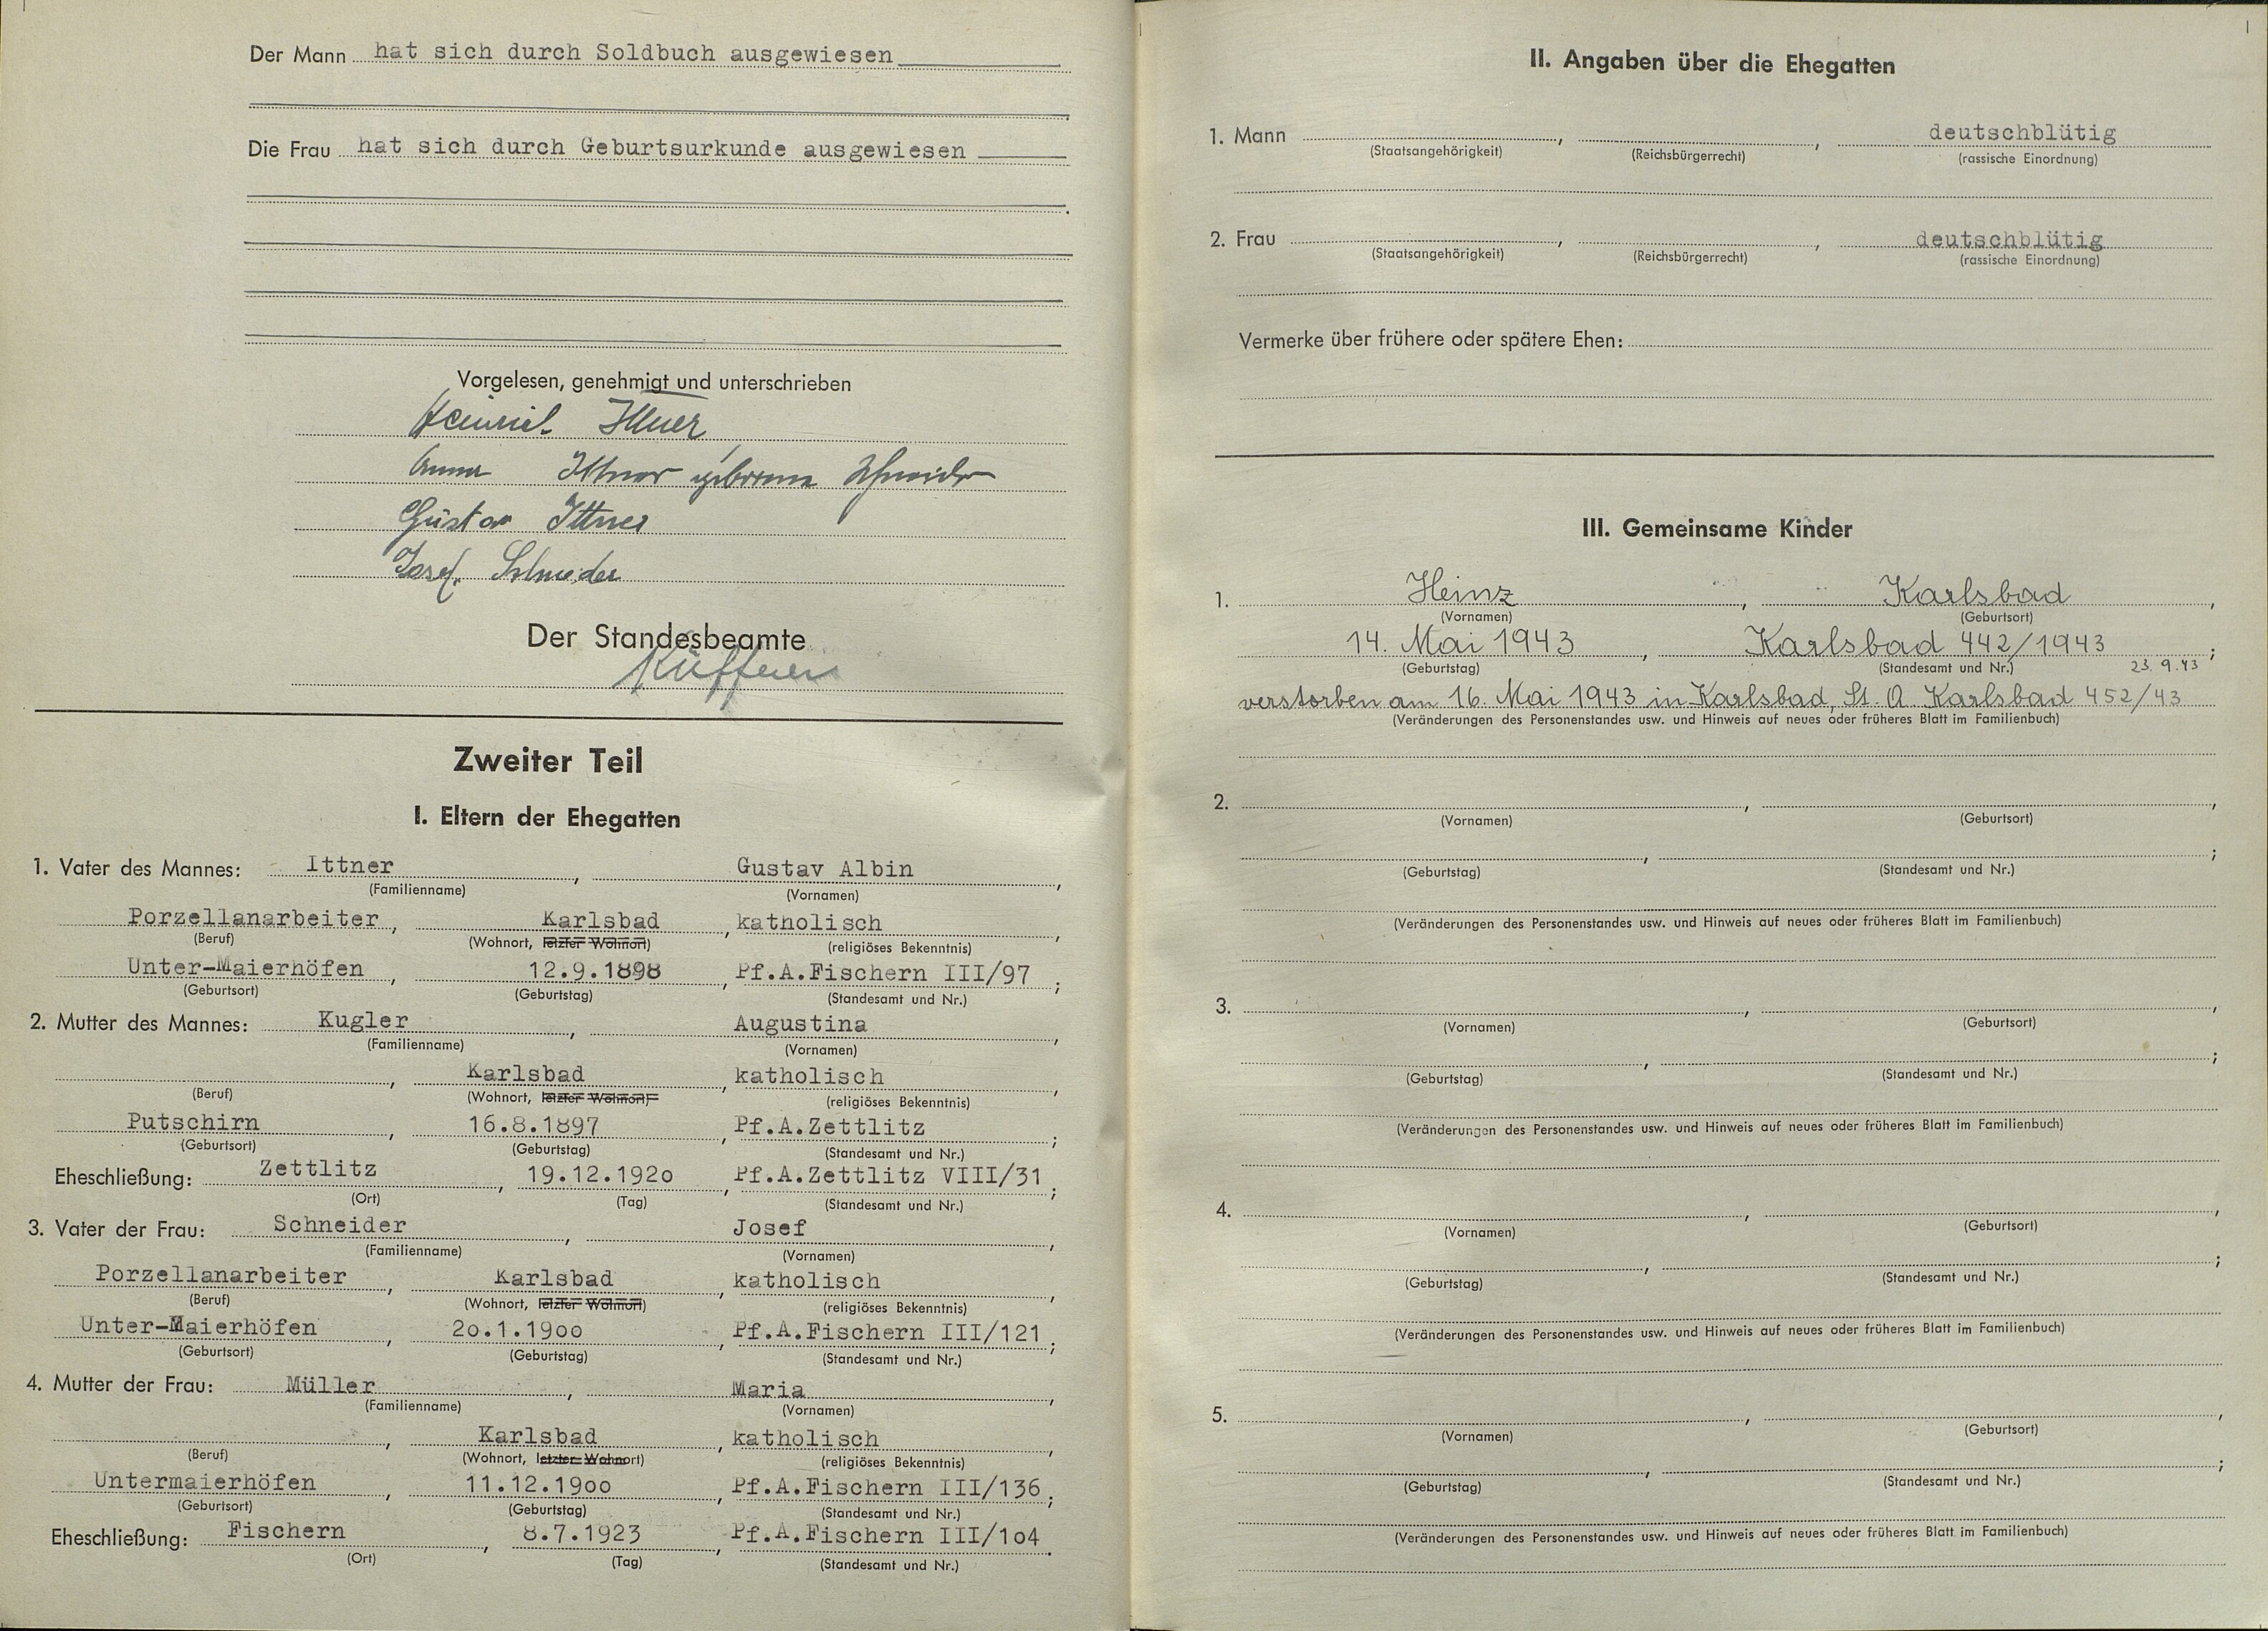 Der Mann hat sich durch Soldbuch ausgewiesen
Die Frau hat sich durch Geburtsurkunde ausgewiesen
Vorgelesen, genehmigt und unterschrieben
Heinrich Ittner
Anna Ittner geborene Schneider
Gustav Ittner
Josef Schneider
Der Standesbeamte
Küffner
Zweiter Teil
I. Eltern der Ehegatten
1. Vater des Mannes: Ittner, Gustav Albin,
(Familienname) (Vornamen)
Porzellanarbeiter, Karlsbad, katholisch,
(Beruf) (Wohnort, letzter Wohnort) (religiöses Bekenntnis)
Unter-Maierhöfen, 12.9.1898, Pf.A.Fischern III/97;
(Geburtsort) (Geburtstag) (Standesamt und Nr.)
2. Mutter des Mannes: Kugler, Augustina,
(Familienname) (Vornamen)
, Karlsbad, katholisch,
(Beruf) (Wohnort, letzter Wohnort) (religiöses Bekenntnis)
Putschirn, 16.8.1897, Pf.A.Zettlitz;
(Geburtsort) (Geburtstag) (Standesamt und Nr.)
Eheschließung: Zettlitz, 19.12.192o, Pf.A.Zettlitz VIII/31;
(Ort) (Tag) (Standesamt und Nr.)
3. Vater der Frau: Schneider, Josef,
(Familienname) (Vornamen)
Porzellanarbeiter, Karlsbad, katholisch,
(Beruf) (Wohnort, letzter Wohnort) (religiöses Bekenntnis)
Unter-Maierhöfen, 2o.1.19oo, Pf.A.Fischern III/121;
(Geburtsort) (Geburtstag) (Standesamt und Nr.)
4. Mutter der Frau: Müller, Maria,
(Familienname) (Vornamen)
, Karlsbad, katholisch,
(Beruf) (Wohnort, letzter Wohnort) (religiöses Bekenntnis)
Untermaierhöfen, 11.12.19oo, Pf.A.Fischern III/136;
(Geburtsort) (Geburtstag) (Standesamt und Nr.)
Eheschließung: Fischern, 8.7.1923, Pf.A.Fischern III/1o4.
(Ort) (Tag) (Standesamt und Nr.)
II. Angaben über die Ehegatten
1. Mann , , deutschblütig
(Staatsangehörigkeit) (Reichsbürgerrecht) (rassische Einordnung)
2. Frau , , deutschblütig
(Staatsangehörigkeit) (Reichsbürgerrecht) (rassische Einordnung)
Vermerke über frühere oder spätere Ehen:
III. Gemeinsame Kinder
1. Heinz, Karlsbad,
(Vornamen) (Geburtsort)
14. Mai 1943, Karlsbad 442/1943;
(Geburtstag) (Standesamt und Nr.) 23.9.43
verstorben am 16. Mai 1943 in Karlsbad, St. A. Karlsbad 452/43
(Veränderungen des Personenstandes usw. und Hinweis auf neues oder früheres Blatt im Familienbuch)
2. , ,
(Vornamen) (Geburtsort)
, ;
(Geburtstag) (Standesamt und Nr.)
(Veränderungen des Personenstandes usw. und Hinweis auf neues oder früheres Blatt im Familienbuch)
3. , ,
(Vornamen) (Geburtsort)
, ;
(Geburtstag) (Standesamt und Nr.)
(Veränderungen des Personenstandes usw. und Hinweis auf neues oder früheres Blatt im Familienbuch)
4. , ,
(Vornamen) (Geburtsort)
, ;
(Geburtstag) (Standesamt und Nr.)
(Veränderungen des Personenstandes usw. und Hinweis auf neues oder früheres Blatt im Familienbuch)
5. , ,
(Vornamen) (Geburtsort)
, ;
(Geburtstag) (Standesamt und Nr.)
(Veränderungen des Personenstandes usw. und Hinweis auf neues oder früheres Blatt im Familienbuch)